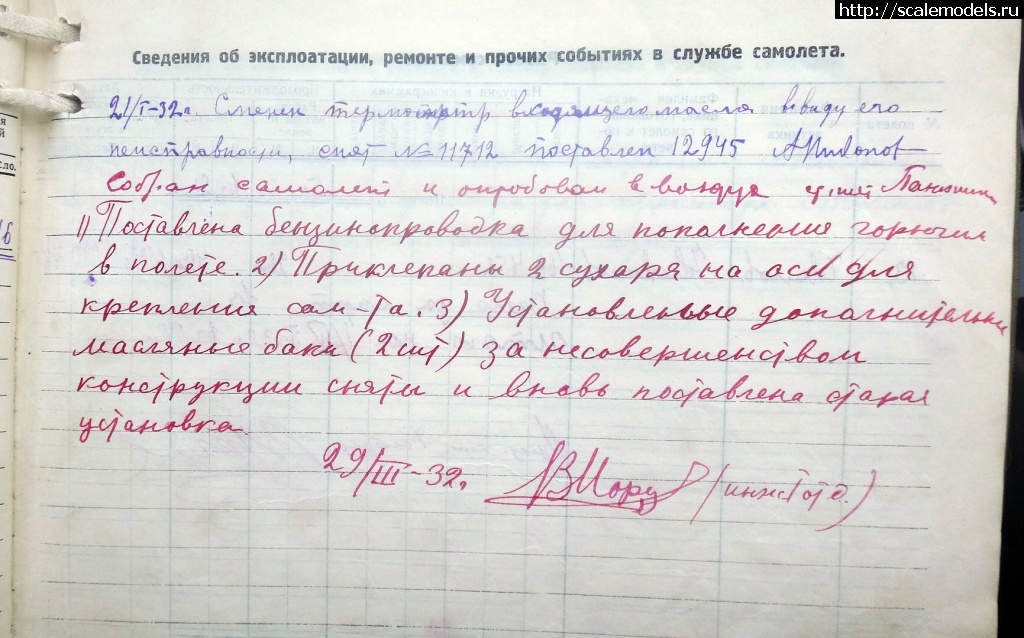 http://scalemodels.ru
Сведения об эксплоатации, ремонте и прочих событиях в службе самолета.
21/I-32г. Сменен термометр входящего масла ввиду его
неисправности, снят № 11712 поставлен 12945
Собран самолет и опробован в воздухе
1) Поставлена бензинопроводка для пополнения горючим
в полете. 2) Приклепаны 2 сухаря на оси для
крепления сам-та. 3) Установленные дополнительные
масляные баки (2 шт) за несовершенством
конструкции сняты и вновь поставлена старая
установка.
29/III-32г.
ло.
16